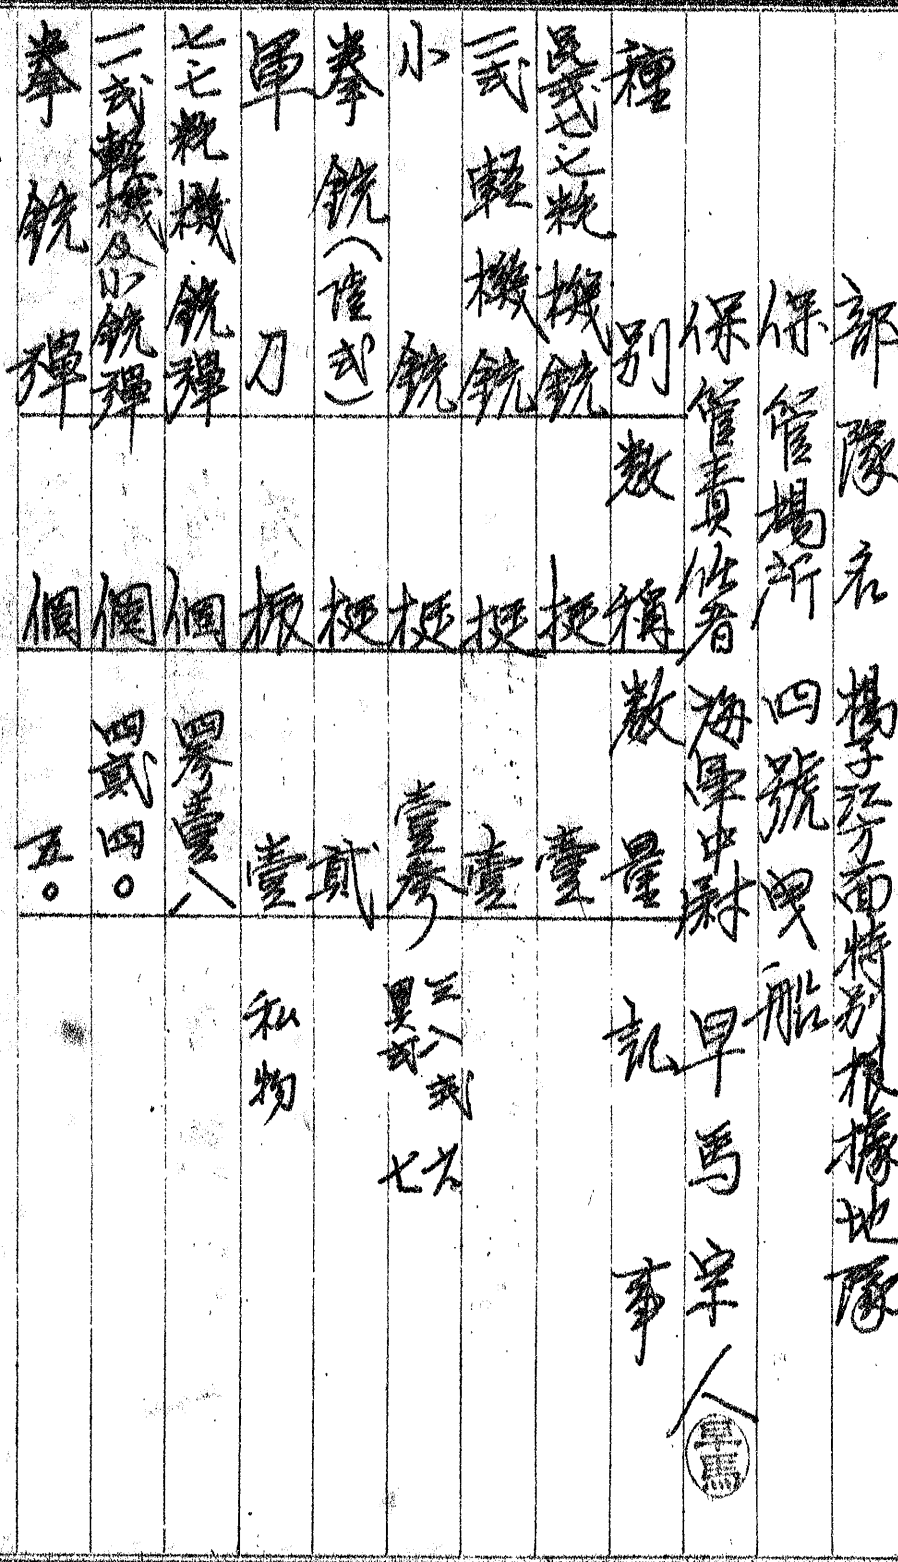 部隊名 揚子江方面特別根據地隊
保管場所 四號曳船
保管責任者 海軍中尉 早馬宗人 早馬
種別 数稱 数量 記事
留式七.七粍機銃 挺 壹
一一式軽機銃 挺 壹
小銃 挺 壹参 三八式 六 異式 七
拳銃(陸式) 挺 貳
軍刀 振 壹 私物
七七粍機銃弾 個 四参壹八
一一式軽機及小銃弾 個 四貳四〇
拳銃弾 個 五〇